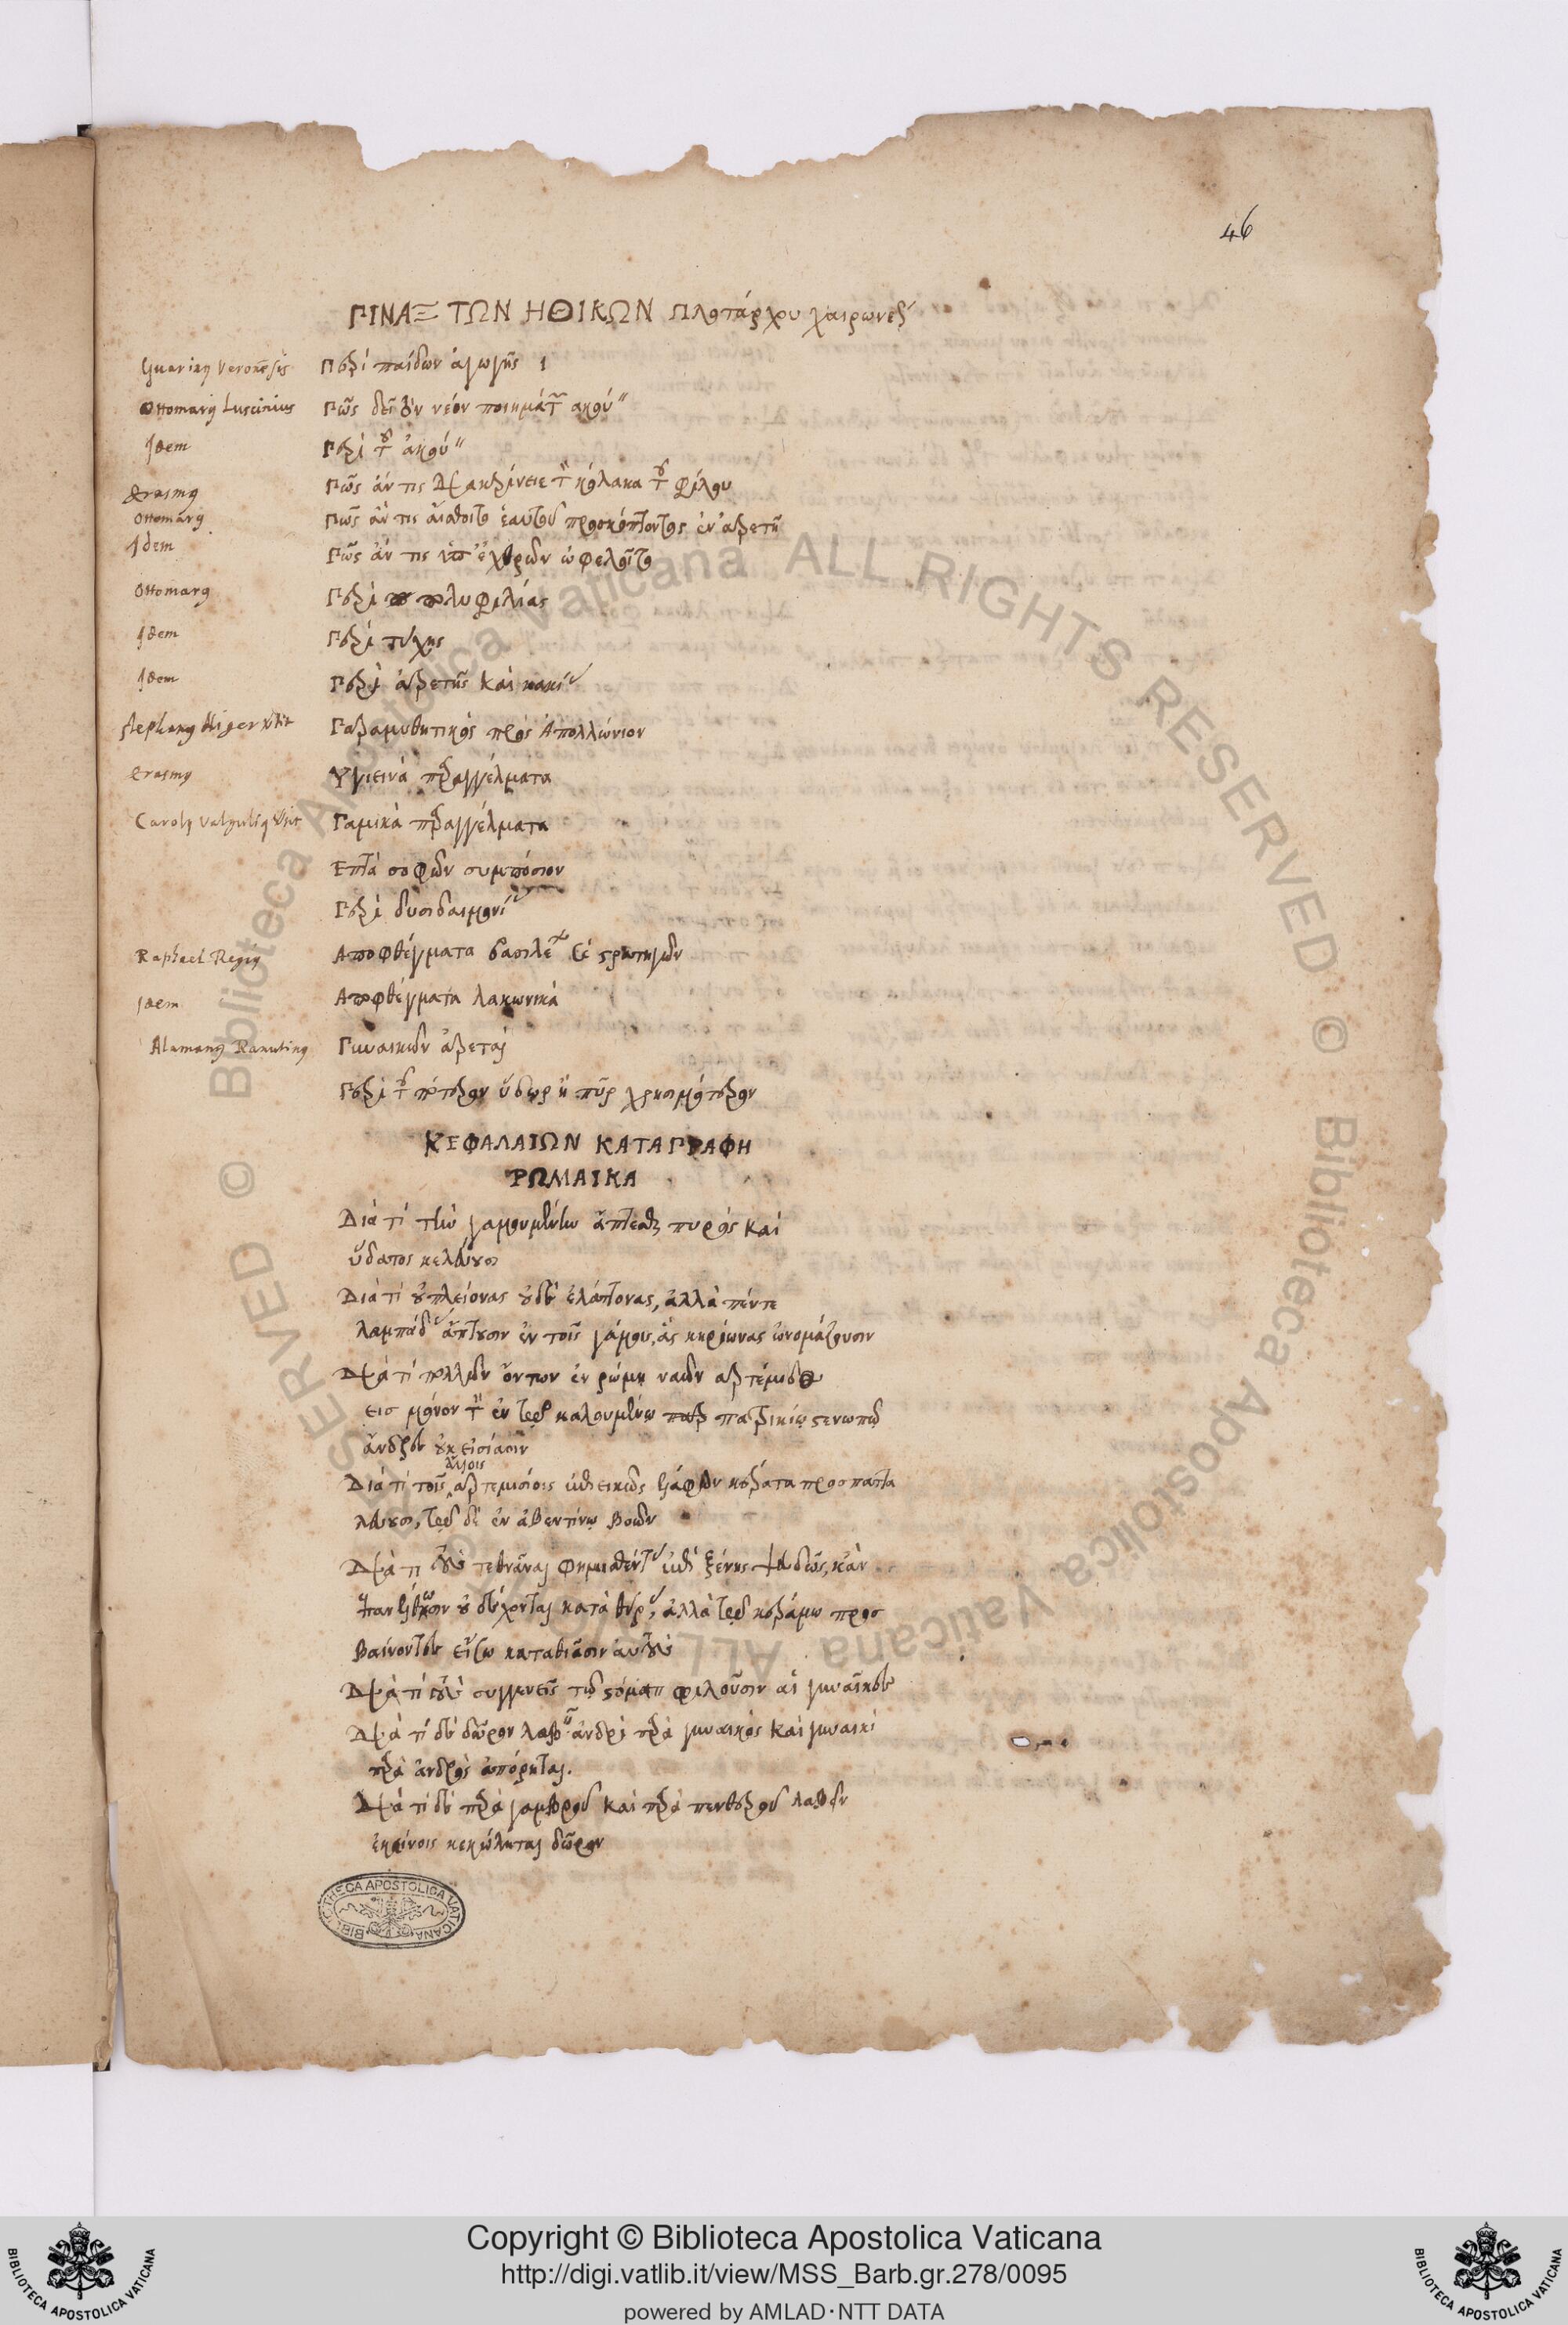 46
ΠΙΝΑΞ ΤΩΝ ΗΘΙΚΩΝ Πλουτάρχου χαιρωνέως
Guarinus Veronensis Περὶ παίδων ἀγωγῆς 1
Ottomarus Luscinius Πῶς δεῖ τὸν νέον ποιημάτων ακούειν
Idem Περὶ τοῦ ἀκούειν
Erasmus Πῶς ἄν τις διακρίνειε τὸν κόλακα τοῦ φίλου
Ottomarus Πῶς ἄν τις αἴσθοιτο ἑαυτοῦ προκόπτοντος ἐν ἀρετῇ
Idem Πῶς ἄν τις ὑπ' ἐχθρῶν ὠφελοῖτο
Ottomarus Περὶ πολυφιλίας
Idem Περὶ τύχης
Idem Περὶ ἀρετῆς καὶ κακίας
Stephanus Niger Παραμυθητικὸς πρὸς Ἀπολλώνιον
Erasmus Υγιεινὰ παραγγέλματα
Carolus Valgulius Γαμικὰ παραγγέλματα
Επτὰ σοφῶν συμπόσιον
Περὶ δεισιδαιμονίας
Raphael Regius Αποφθέγματα βασιλέων καὶ στρατηγῶν
Idem Αποφθέγματα λακωνικά
Alamanus Ranutinus Γυναικῶν ἀρεταί
Περὶ τοῦ πότερον ὕδωρ ἢ πῦρ χρησιμώτερον
ΚΕΦΑΛΑΙΩΝ ΚΑΤΑΓΡΑΦΗ
ΡΩΜΑΙΚΑ
Διὰ τί τὴν γαμουμένην ἅπτεσθαι πυρὸς καὶ
ὕδατος κελεύουσι
Διὰ τί οὐ πλείονας οὐδὲ ἐλάττονας, ἀλλὰ πέντε
λαμπάδας ἅπτουσιν ἐν τοῖς γάμοις, ἃς κηρίωνας ὀνομάζουσιν
Διὰ τί πολλῶν ὄντων ἐν ρώμῃ ναῶν αρτέμιδος
εις μόνον τὸν ἐν τῷ καλουμένῳ πατρικίῳ στενωπῷ
ἄνδρες οὐκ εἰσίασιν
Διὰ τί τοῖς ἄλλοις ἀρτεμισίοις ἐπιεικῶς ἐλάφων κέρατα προσπαττα
λεύουσι, τῷ δὲ ἐν ἀβεντίνῳ βοῶν
Διὰ τί τοὺς τεθνάναι φημισθέντας ἐπὶ ξένης ψευδῶς, κἂν
ἐπανέλθωσιν οὐ δέχονται κατὰ θύρας, ἀλλὰ τῷ κεράμῳ προσ
βαίνοντες εἴσω καταβιᾶσιν αὐτούς
Διὰ τί τοὺς συγγενεῖς τῷ στόματι φιλοῦσιν αἱ γυναῖκες
Διὰ τί δὲ δῶρον λαβεῖν ἀνδρὶ παρὰ γυναικὸς καὶ γυναικὶ
παρὰ ἀνδρὸς ἀπόρρηται.
Διὰ τί δὲ παρὰ γαμβροῦ καὶ παρὰ πενθεροῦ λαβεῖν
ἐκείνοις κεκώλυται δῶρον
BIBLIOTHECA APOSTOLICA VATICANA
© Biblioteca Apostolica Vaticana ALL RIGHTS RESERVED © Biblioteca Apostolica Vaticana ALL RIGHTS RESERVED
Copyright © Biblioteca Apostolica Vaticana
http://digi.vatlib.it/view/MSS_Barb.gr.278/0095
powered by AMLAD·NTT DATA
BIBLIOTECA APOSTOLICA VATICANA
BIBLIOTECA APOSTOLICA VATICANA